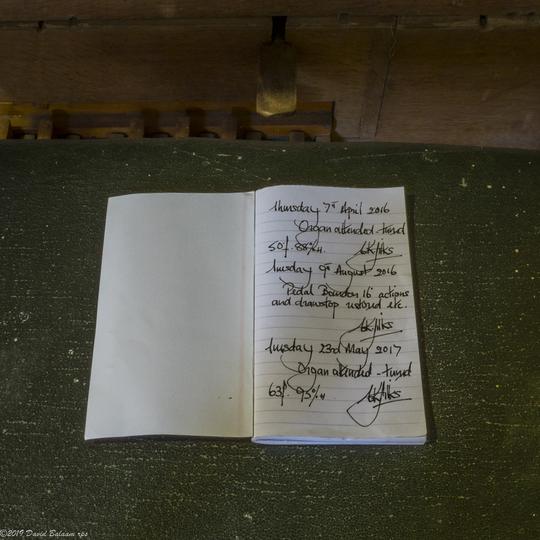 Thursday 7th April 2016
Organ attended - tuned
50°f. 88%H.
Tuesday 9th August 2016
Pedal Bourdon 16' actions
and drawstop restored etc.
Tuesday 23rd May 2017
Organ attended - tuned
63°f. 95%H
©2019 David Balaam rps